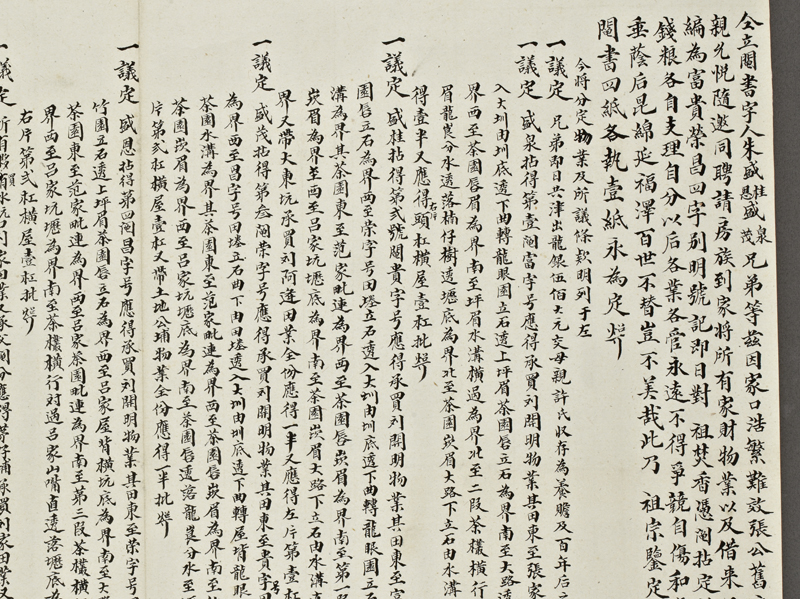 仝立鬮書字人朱盛桂恩盛泉茂兄弟等茲因家口浩繁難效張公舊
親兄悅隨邀同聘請房族到家將所有家財物業以及借來
編為富貴榮昌四字別明號記即日對 祖焚香憑鬮拈定
錢粮各自支理自分以后各業各管永遠不得爭競自傷和
垂蔭后昆綿延福澤百世不替豈不美哉此乃 祖宗鑒定
鬮書四紙各執壹紙永為定炤
今將分定物業及所議條款明列于左
一議定 兄弟即日共津出龍銀伍佰大元交母親許氏收存為養贍及百年后
一議定 盛泉拈得第壹鬮富字号應得承買列開明物業其田東至張家
入大圳由圳底透下曲轉龍眼園立石透上坪眉茶園唇立石為界南至大路透
界西至茶園唇眉為界南至坪眉水溝橫過為界北至二段茶欉橫行
眉龍崀分水透落楠仔樹透壢底為界北至茶園崁眉大路下立石由水溝
得壹半又應得右片頭杠橫屋壹杠批炤
一議定 盛桂拈得第弍號鬮貴字号應得承買列開明物業其田東至富
園唇立石為界西至榮字号田塍立石透入大圳由圳底透下曲轉龍眼園立石
溝為界其茶園東至范家毗連為界西至茶園唇崁眉為界南至第一
崁眉為界西至呂家坑壢底為界南至茶園崁眉大路下立石由水溝
界又帶大東坑承買列阿連田業全份應得一半又應得左片第壹杠
一議定 盛茂拈得第叁鬮榮字号應得承買列開明物業其田東至貴字
為界西至昌字号田塍立石曲下由田塍透入大圳由圳底透下曲轉屋背龍眼
茶園水溝為界其茶園東至范家毗連為界西至茶園唇崁眉為界南
茶園崁眉為界西至呂家坑壢底為界南至茶園唇透落龍崀分水至
片第弍杠橫屋壹杠又帶土地公埔物業全份應得一半批炤
一議定 盛恩拈得第四鬮昌字号應得承買列開明物業其田東至榮字号
竹園立石透上坪眉茶園唇立石為界西至呂家屋背橫坑底為界南至大
茶園東至范家毗連為界西至呂家茶園毗連為界南至第三段茶欉橫
界西至呂家坑壢為界南至茶欉橫行对過呂家山嘴直透落壢底
右片第弍杠橫屋壹杠批炤
一議定